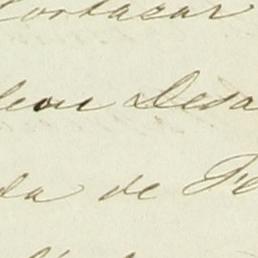 Cortazar
leon Desa
da de Fe